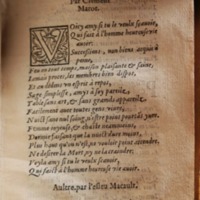 Par Clement
Marot.
VOicy amy si tu le veulx scavoir,
Qui fait à l'homme heureuse vie avoir:
Successions, non biens acquis à
peine,
Feu en tout temps, maison plaisante & saine,
Jamais proces, les membres bien dispos,
Et au dedans un esprit à repos,
Sage simplesse, amys à soy pareilz,
Table sans art, & sans grands appareilz,
Facilement avec toutes gens vivre,
Nuict sans nul soing, n'estre pourtant yvre,
Femme joyeuse, & chaste neantmoins,
Dormir faisant que la nuict dure moins,
Plus hault qu'on n'est, ne vouloir point attaindre,
Ne desirer la Mort, ny ne la craindre:
Voyla amy si tu le veulx scavoir,
Qui fait à l'homme heureuse vie avoir.
Aultre, par l'esleu Macault.